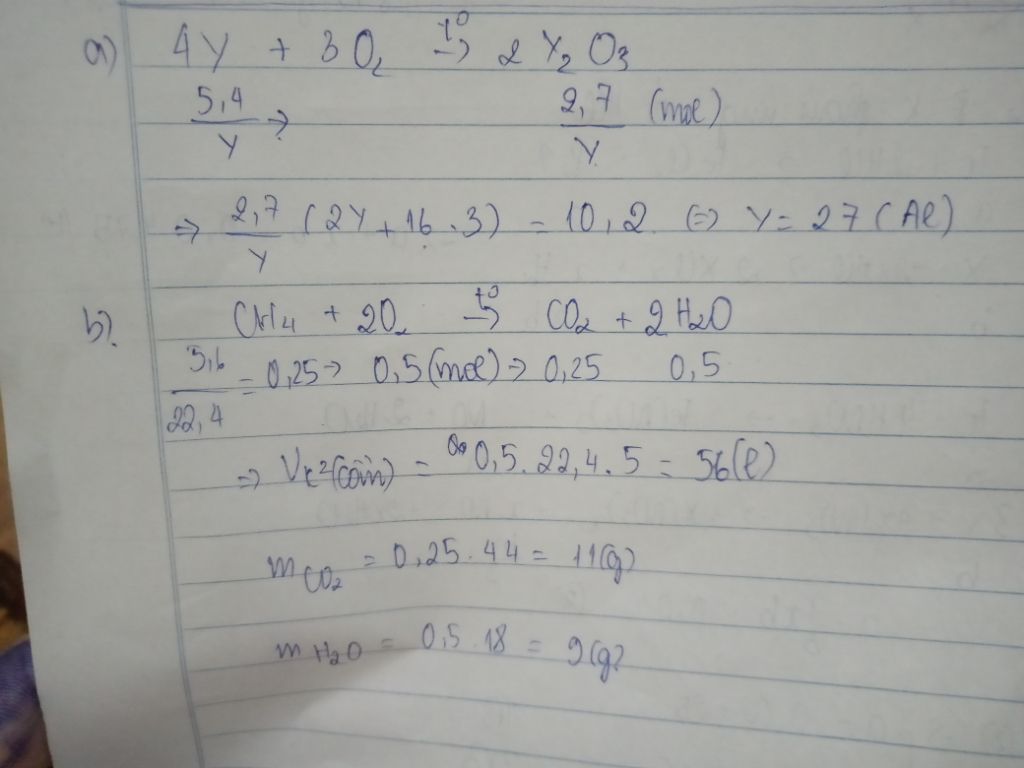 a) 4Y + 3O₂ t⁰→ 2Y₂O₃
5,4/Y → 2,7/Y (mol)
⇒ 2,7/Y (2Y + 16.3) = 10,2 ⇔ Y = 27 (Al)
b). CH₄ + 2O₂ t⁰→ CO₂ + 2H₂O
5,6/22,4 = 0,25 → 0,5 (mol) → 0,25 0,5
⇒ = 0,5.22,4.5 = 56(l)
m CO₂ = 0,25.44 = 11(g)
m H₂O = 0,5.18 = 9(g)